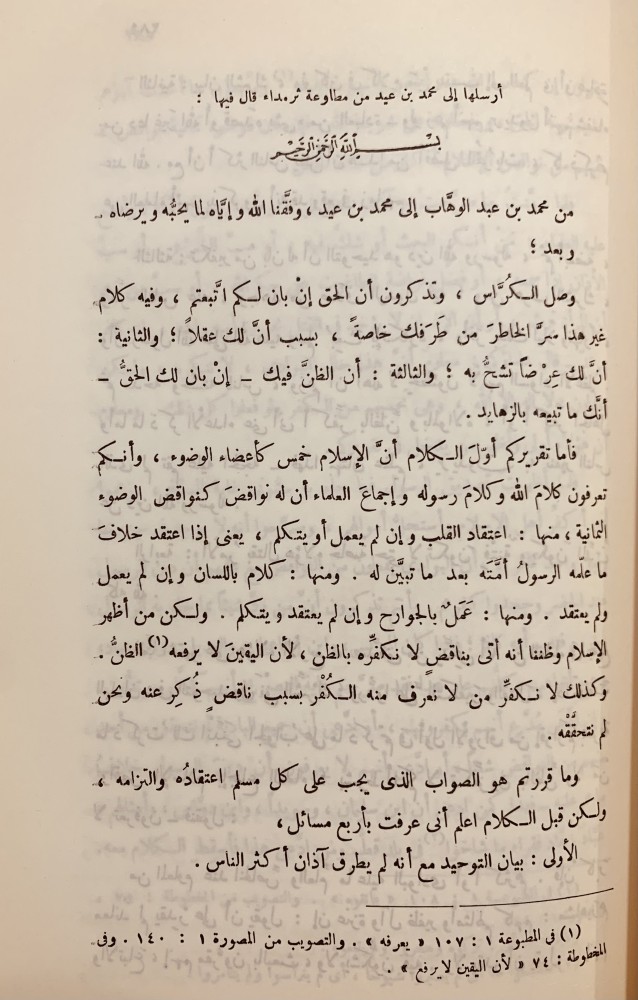 أرسلها إلى محمد بن عيد من مطاوعة ثرمداء قال فيها :
بسم الله الرحمن الرحيم
من محمد بن عبد الوهَّاب إلى محمد بن عيد ، وفَّقنا الله وإيَّاه لما يحبُّه ويرضاه ..
وبعد ؛
وصل الكُرَّاس ، وتذكرون أن الحق إنْ بان لكم اتَّبعتم ، وفيه كلام
غير هذا سرَّ الخاطرَ من طَرَفك خاصةً ، بسبب أنَّ لك عقلاً ؛ والثانية :
أنَّ لك عِرْضاً تشحُّ به ؛ والثالثة : أن الظنَّ فيك – إنْ بان لك الحقُّ –
أنَّك ما تبيعه بالزهايد .
فأما تقريركم أوّلَ الكلام أنَّ الإسلام خمس كأعضاء الوضوء ، وأنكم
تعرفون كلامَ الله وكلامَ رسوله وإجماعَ العلماء أن له نواقضَ كنواقض الوضوء
الثمانية ، منها : اعتقاد القلب وإن لم يعمل أو يتكلم ، يعنى إذا اعتقد خلافَ
ما علّمه الرسولُ أمَّتَه بعد ما تبيَّن له . ومنها : كلام باللسان وإن لم يعمل
ولم يعتقد . ومنها : عَمَلٌ بالجوارح وإن لم يعتقد ويتكلم . ولكن من أظهر
الإسلام وظننا أنه أتى بناقضٍ لا نكفِّره بالظن ، لأن اليقينَ لا يرفعه(١) الظنُّ .
وكذلك لا نكفِّر من لا نعرف منه الكُفْر بسبب ناقضٍ ذُكِر عنه ونحن
لم نتحقَّقْه .
وما قررتم هو الصواب الذى يجب على كل مسلم اعتقادُه والتزامه ،
ولكن قبل الكلام اعلم أنى عرفت بأربع مسائل ،
الأولى : بيان التوحيد مع أنه لم يطرق آذان أكثر الناس .
(١) فى المطبوعة ١ : ١٠٧ « يعرفه » . والتصويب من المصورة ١ : ١٤٠ . وفى
المخطوطة : ٧٤ « لأن اليقين لايرفع » .